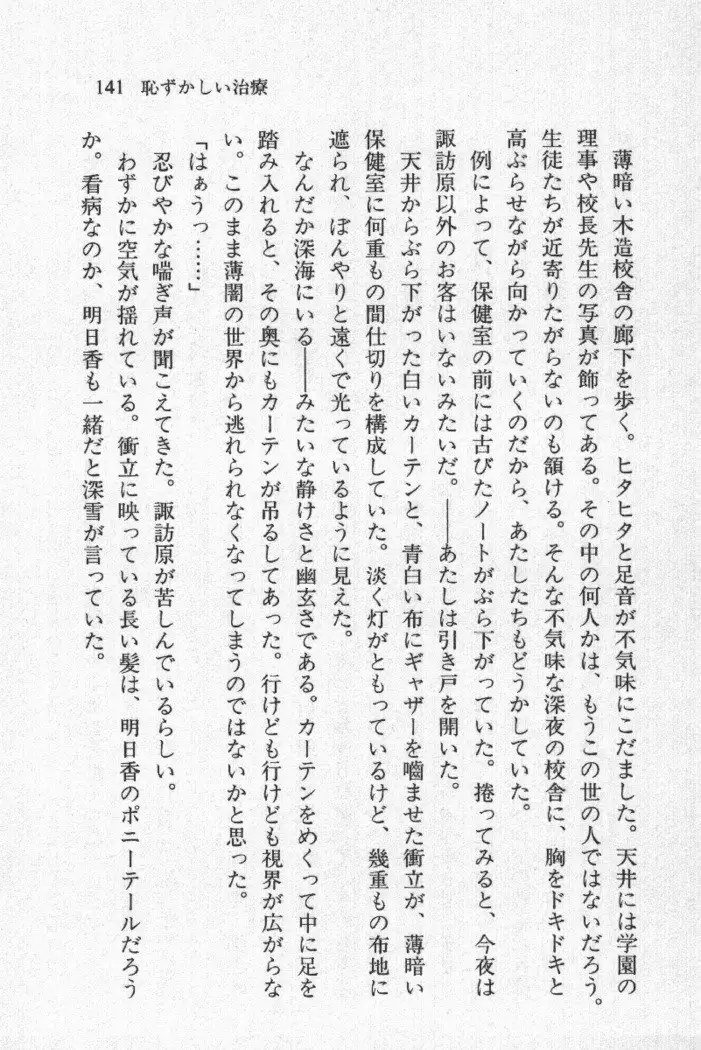 141 恥ずかしい治療
薄暗い木造校舎の廊下を歩く。ヒタヒタと足音が不気味にこだました。天井には学園の
理事や校長先生の写真が飾ってある。その中の何人かは、もうこの世の人ではないだろう。
生徒たちが近寄りたがらないのも頷ける。そんな不気味な深夜の校舎に、胸をドキドキと
高ぶらせながら向かっていくのだから、あたしたちもどうかしていた。
例によって、保健室の前には古びたノートがぶら下がっていた。捲ってみると、今夜は
諏訪原以外のお客はいないみたいだ。――あたしは引き戸を開いた。
天井からぶら下がった白いカーテンと、青白い布にギャザーを嚙ませた衝立が、薄暗い
保健室に何重もの間仕切りを構成していた。淡く灯がともっているけど、幾重もの布地に
遮られ、ぼんやりと遠くで光っているように見えた。
なんだか深海にいる――みたいな静けさと幽玄さである。カーテンをめくって中に足を
踏み入れると、その奥にもカーテンが吊るしてあった。行けども行けども視界が広がらな
い。このまま薄闇の世界から逃れられなくなってしまうのではないかと思った。
「はぁうっ……」
忍びやかな喘ぎ声が聞こえてきた。諏訪原が苦しんでいるらしい。
わずかに空気が揺れている。衝立に映っている長い髪は、明日香のポニーテールだろう
か。看病なのか、明日香も一緒だと深雪が言っていた。